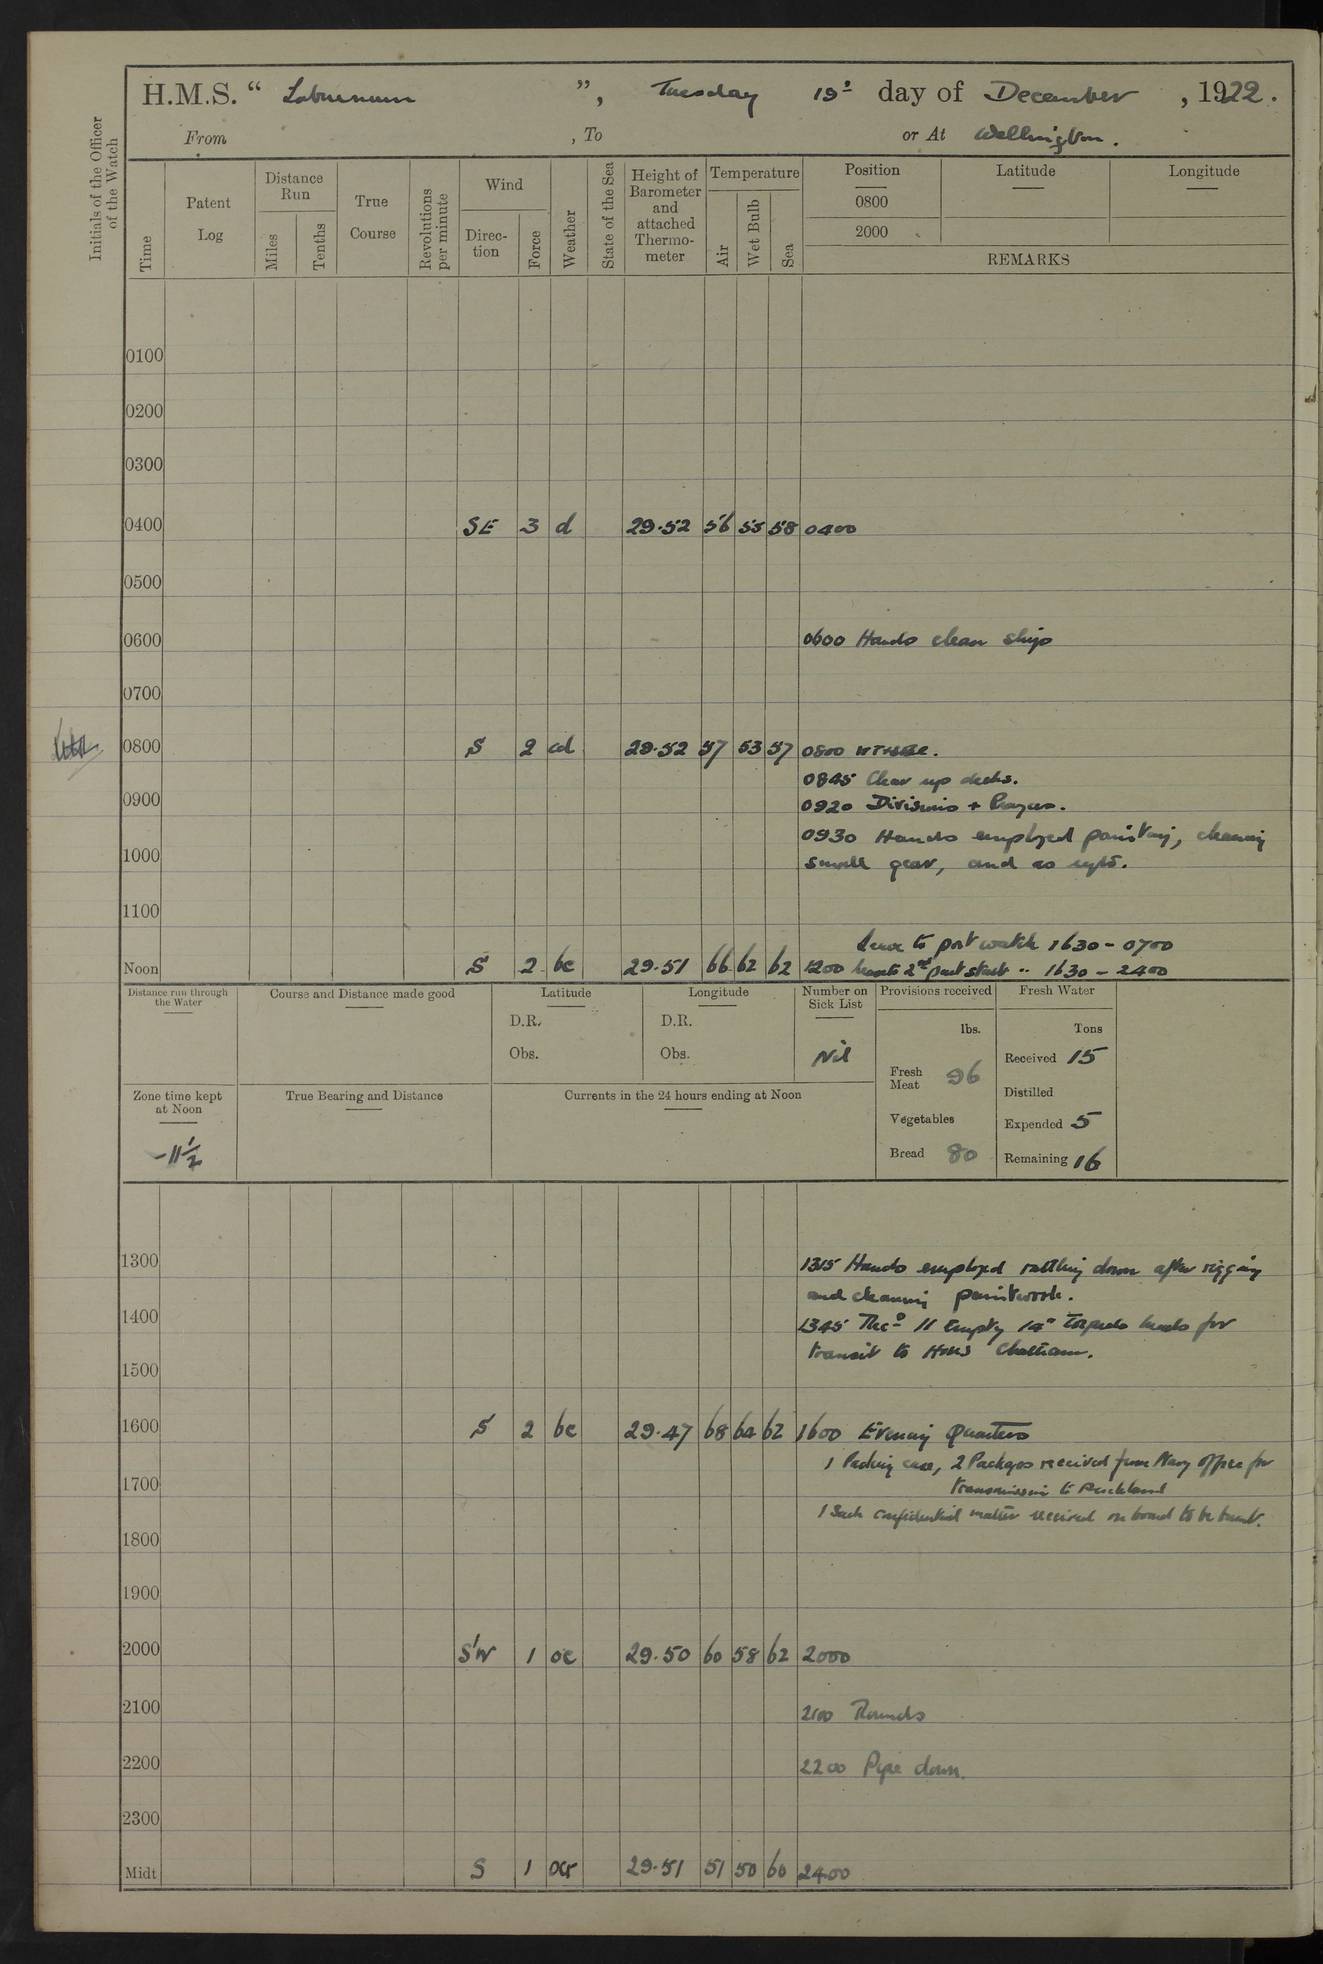 H.M.S. “ Laburnum ”, Tuesday 19th day of December, 1922.
From , To or At Wellington.
Initials of the Officer of the Watch
Time
Patent Log
Distance Run
Miles
Tenths
True Course
Revolutions per minute
Wind
Direction
Force
Weather
State of the Sea
Height of Barometer and attached Thermometer
Temperature
Air
Wet Bulb
Sea
Position
0800
2000
Latitude
Longitude
REMARKS
0100
0200
0300
0400 SE 3 d 29.52 56 55 58 0400
0500
0600 0600 Hands clean ship
0700
0800 S 2 cd 29.52 57 53 57 0800
0845 Clear up decks.
0900
0920 Divisions + Prayers.
0930 Hands employed painting, cleaning
1000
small gear, and as reqd.
1100
Leave to port watch 1630 - 0700
Noon S 2 bc 29.51 66 62 62 1200 2nd part starbd " 1630 - 2400
Distance run through the Water
Course and Distance made good
Latitude
D.R.
Obs.
Longitude
D.R.
Obs.
Number on Sick List
Nil
Provisions received
lbs.
Fresh Meat 96
Vegetables
Bread 80
Fresh Water
Tons
Received 15
Distilled
Expended 5
Remaining 16
Zone time kept at Noon
-11½
True Bearing and Distance
Currents in the 24 hours ending at Noon
1300
1315 Hands employed rattling down after rigging
and cleaning paintwork.
1400
1345 Recd 11 Empty 14" Torpedo heads for
transit to HMS Chatham.
1500
1600 S 2 bc 29.47 68 64 62 1600 Evening Quarters
1 Packing case, 2 Packages received from Navy office for
1700
transmission to Auckland
1 Sack confidential matter received on board to be burnt.
1800
1900
2000 S'W 1 oc 29.50 60 58 62 2000
2100 2100 Rounds
2200 2200 Pipe down.
2300
Midt S 1 ocr 29.51 51 50 60 2400